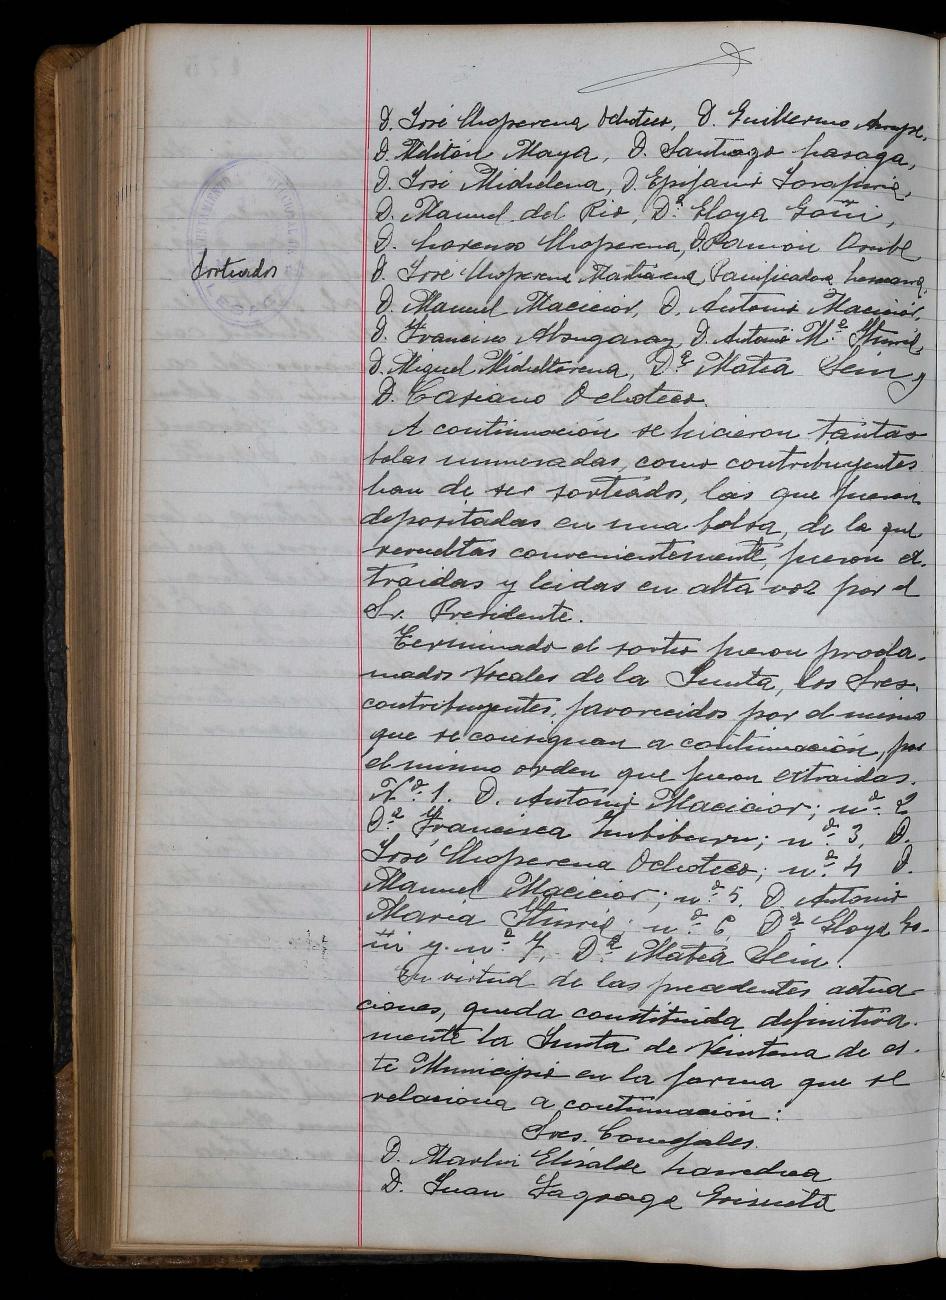 D. José Choperena Ochoteco, D. Guillermo
D. Melitón Maya, D. Santiago Lasaga,
D. José Michelena, D. Epifanio
D. Manuel del Rio, D.ª Eloya Goñi,
D. Lorenzo Choperena, D. Ramon Oribe
D. José Choperena Panificadora
D. Manuel Macicior, D. Antonio Macicior,
D. Francisco D. Antonio M.ª
D. Miguel Micheltorena, D.ª Matea Sein y
D. Casiano Ochoteco.
Sorteados
A continuación se hicieron tantas
bolas numeradas, como contribuyentes
han de ser sorteados, las que fueron
depositadas en una bolsa, de la que
revueltas convenientemente, fueron ex-
traidas y leidas en alta voz por el
Sr. Presidente.
Terminado el sorteo fueron procla-
mados Vocales de la Junta, los Sres.
contribuyentes, favorecidos por el mismo
que se consignan a continuación, por
el mismo orden que fueron extraidas.
N.º 1. D. Antonio Macicior; n.º 2
D.ª Francisca n.º 3, D.
José Choperena Ochoteco; n.º 4 D.
Manuel Macicior; n.º 5. D. Antonio
Maria n.º 6, D.ª Eloya Go-
ñi y n.º 7, D.ª Matea Sein.
En virtud de las precedentes actua-
ciones, queda constituida definitiva-
mente la Junta de Veintena de es-
te Municipio en la forma que se
relaciona a continuación:
Sres. Concejales.
D. Martin Elizalde Larredea
D. Juan